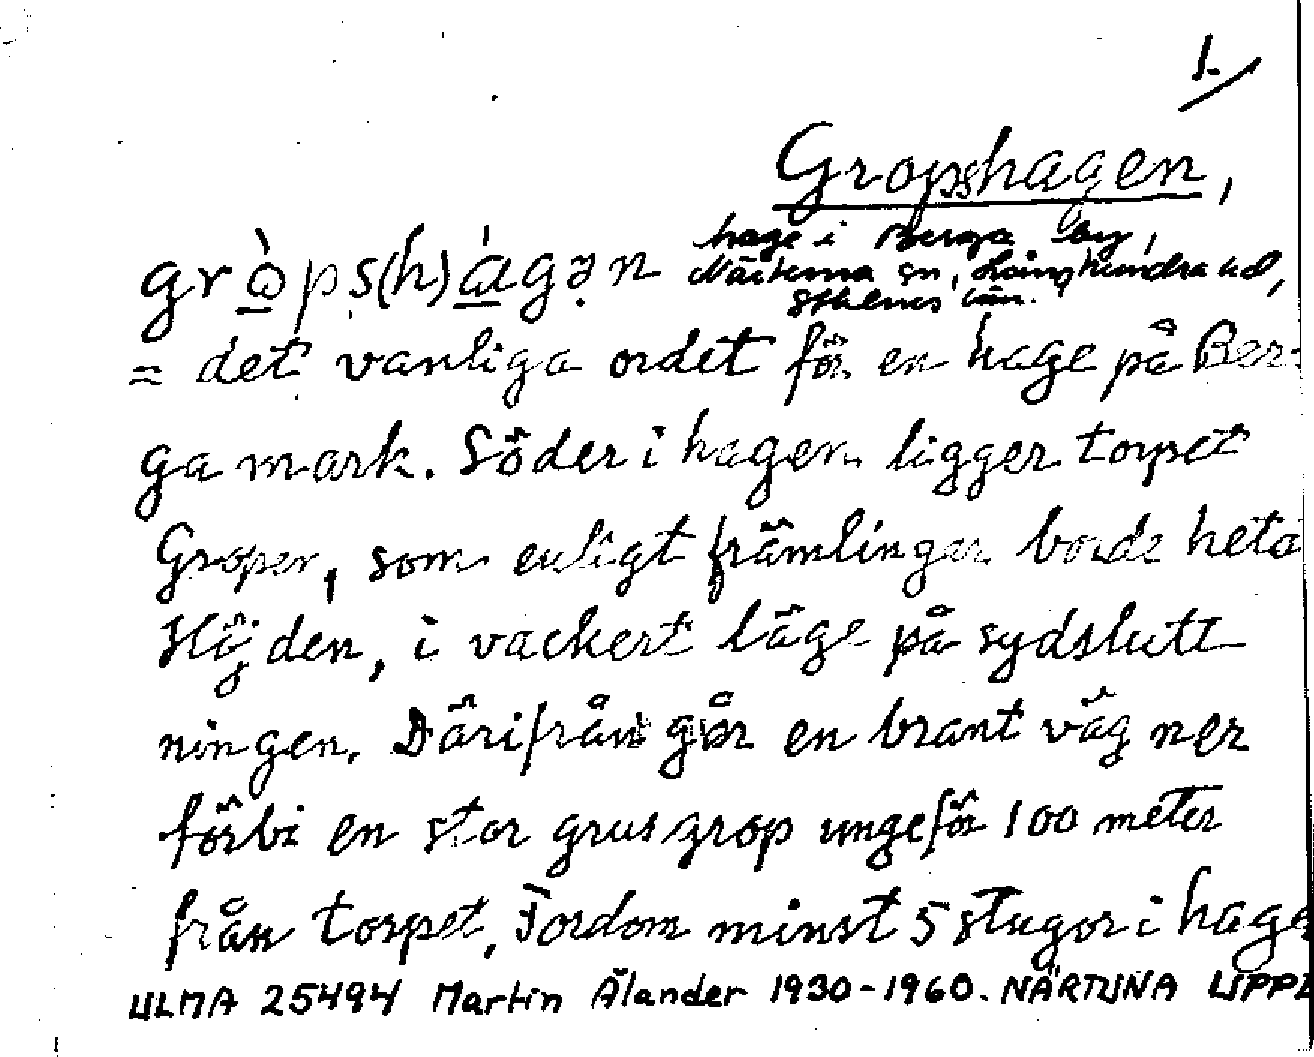 1.
Gropshagen,
hage i Berga by,
Närtuna sn, Långhundra hd,
Sthlms län.
gròps(h)ágən
= det vanliga ordet för en hage på Ber-
ga mark. Söder i hagen ligger torpet
Gropen, som enligt främlingen borde heta
Höjden, i vackert läge på sydslutt
ningen. Därifrån går en brant väg ner
förbi en stor grusgrop ungefär 100 meter
från torpet. Fordom minst 5 stugor i hage
ULMA 25494 Martin Ålander 1930-1960. NÄRTUNA UPPL